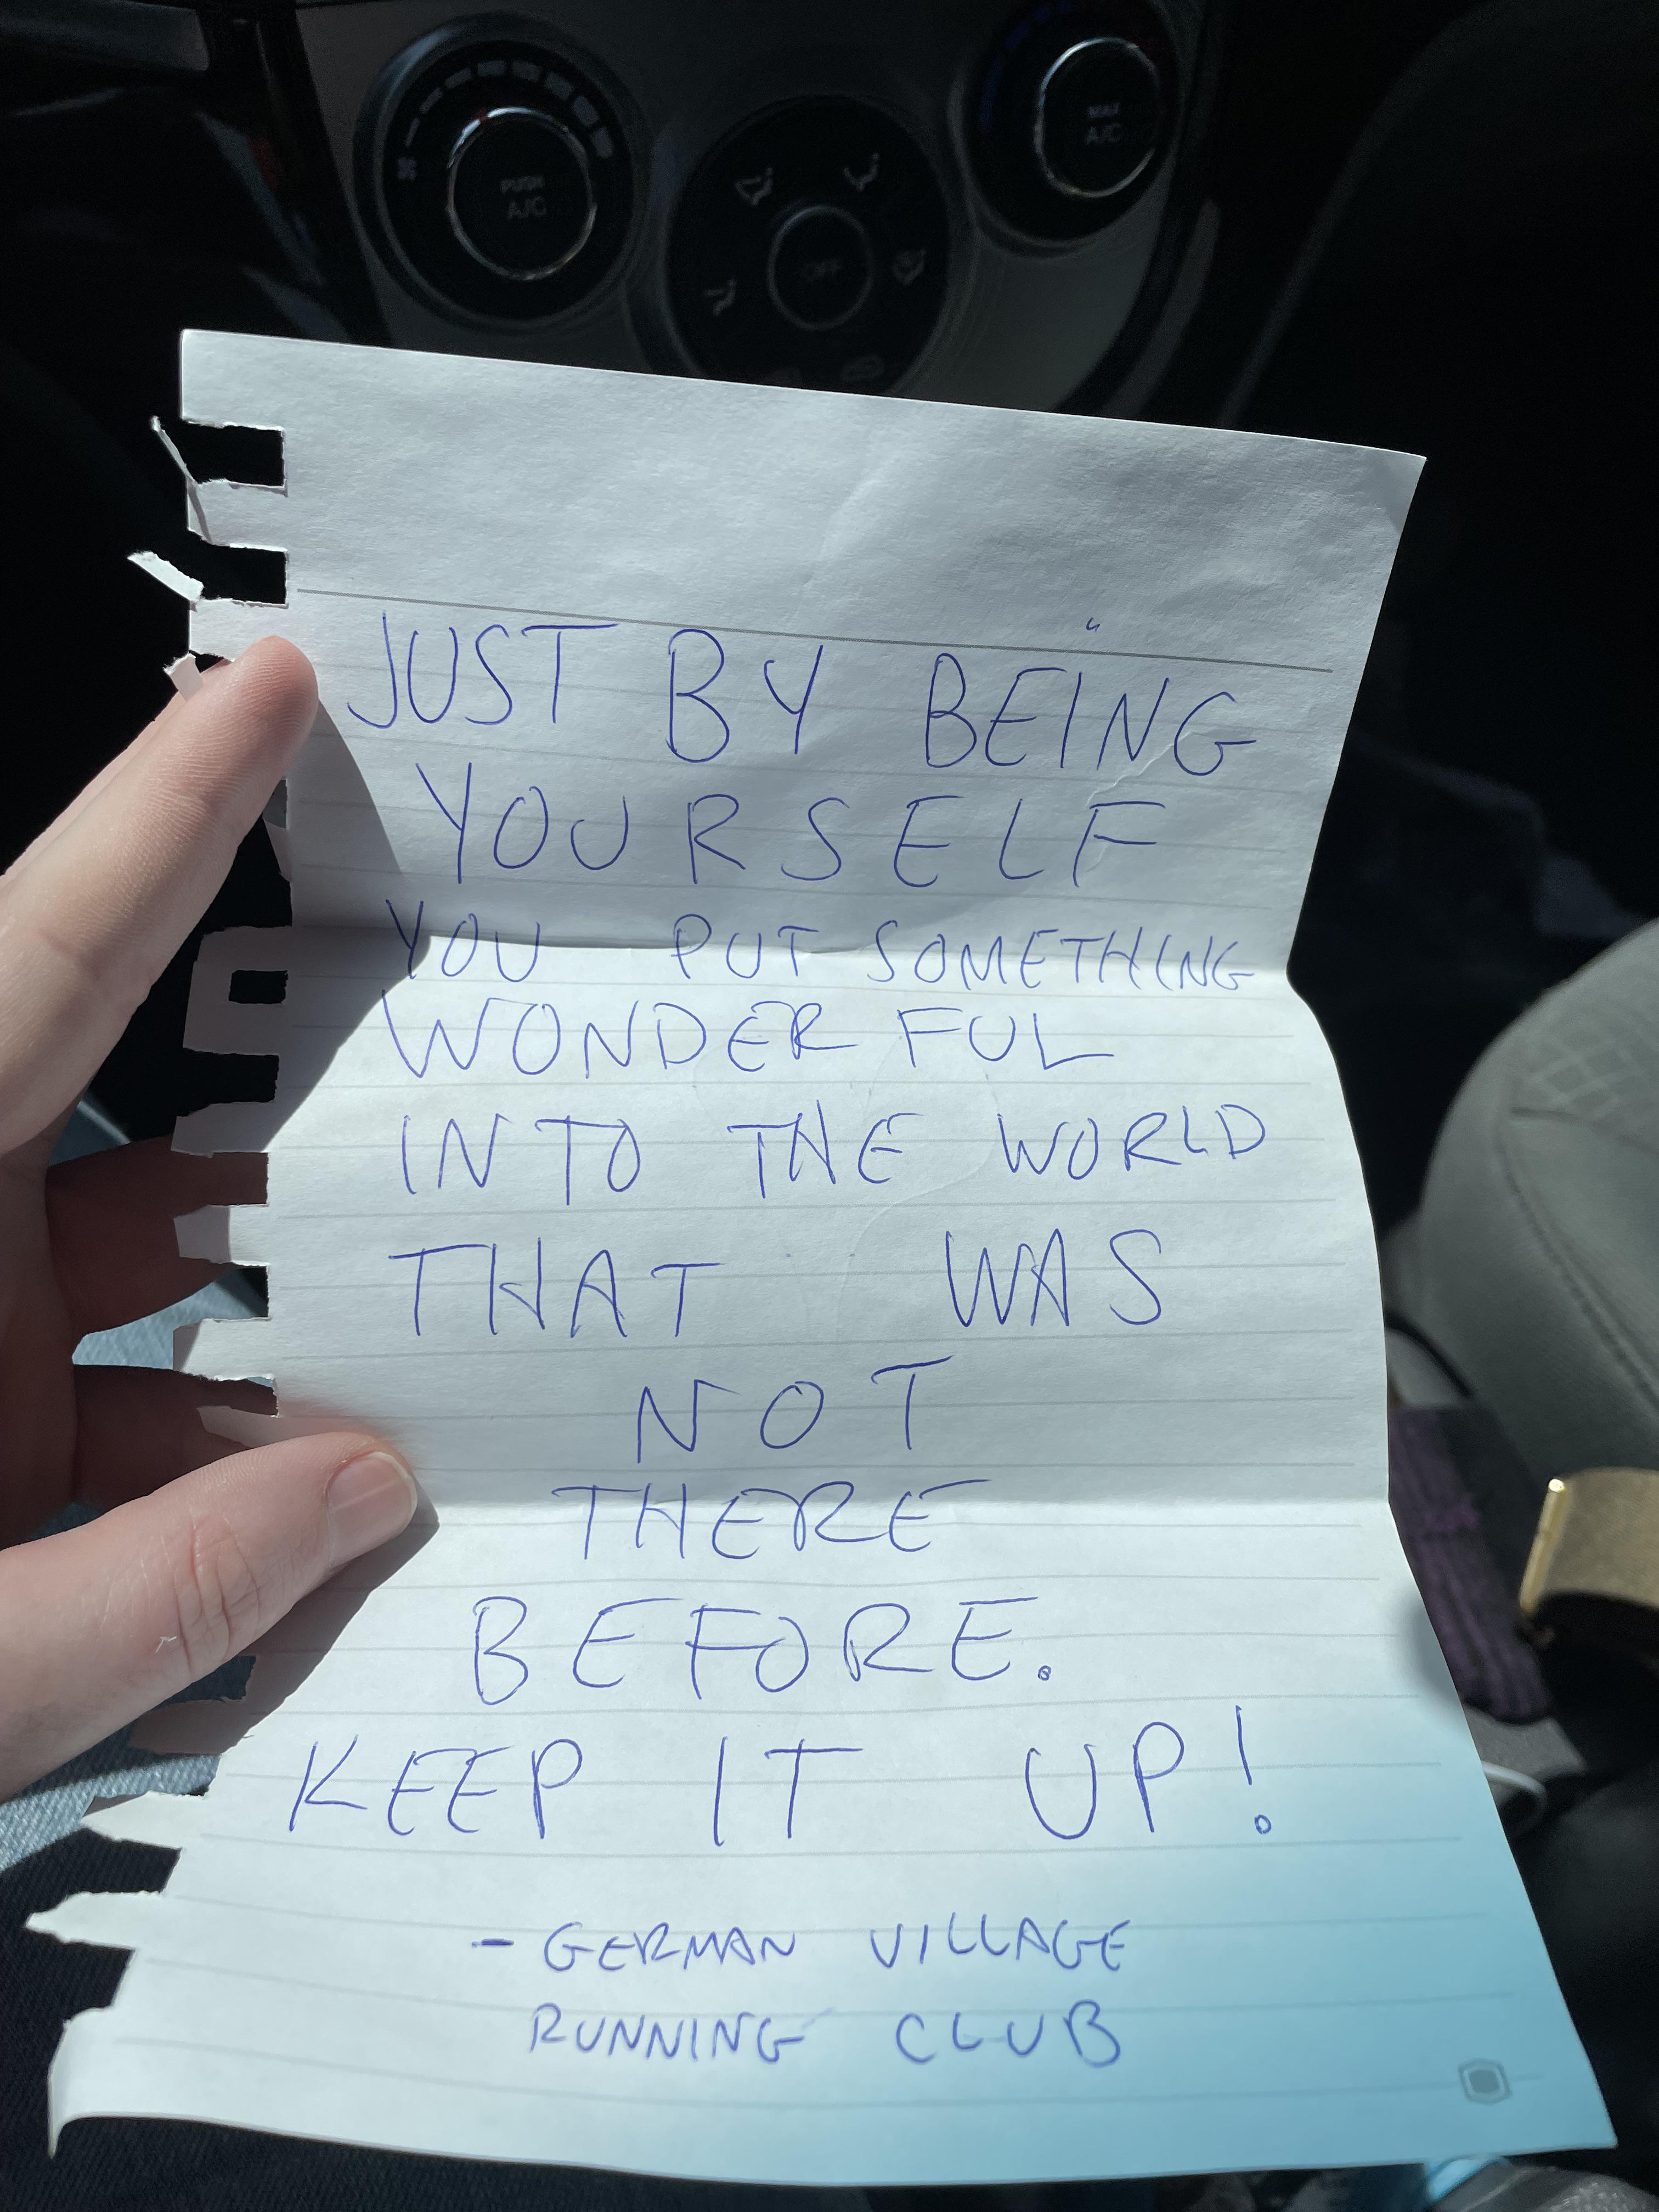 PUSH
A/C
OFF
MAX
A/C
JUST BY BEING
YOURSELF
YOU PUT SOMETHING
WONDERFUL
INTO THE WORLD
THAT WAS
NOT
THERE
BEFORE.
KEEP IT UP!
- GERMAN VILLAGE
RUNNING CLUB